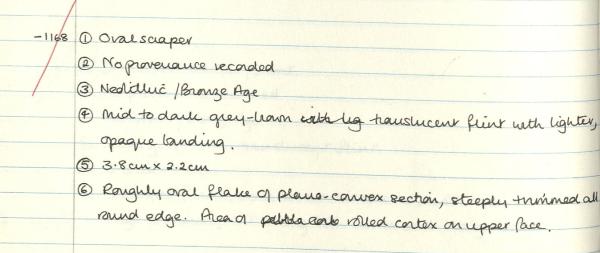 -1168 ① Oval scraper
② No provenance recorded
③ Neolithic / Bronze Age
④ Mid to dark grey-brown with lig translucent flint with lighter,
opaque banding.
⑤ 3.8cm x 2.2cm
⑥ Roughly oval flake of plano-convex section, steeply trimmed all
round edge. Area of rolled cortex on upper face.